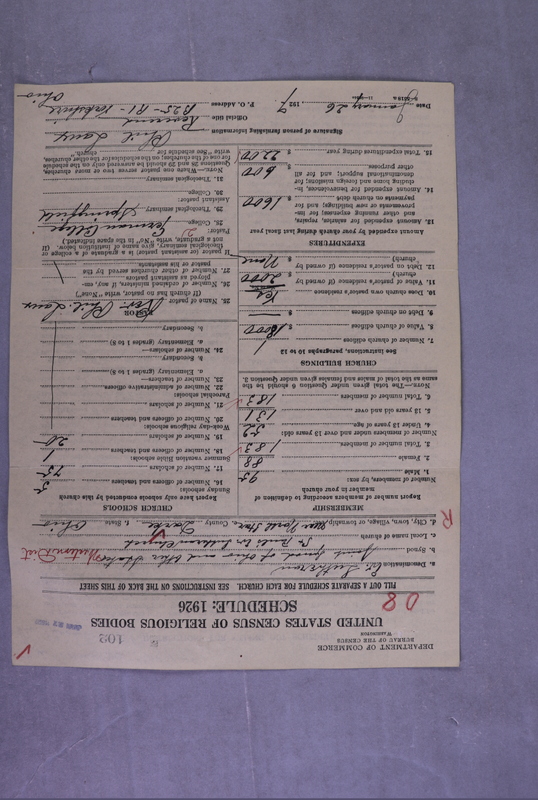 DEPARTMENT OF COMMERCE
BUREAU OF THE CENSUS
WASHINGTON
102
UNITED STATES CENSUS OF RELIGIOUS BODIES
SCHEDULE: 1926
08
FILL OUT A SEPARATE SCHEDULE FOR EACH CHURCH. SEE INSTRUCTIONS ON THE BACK OF THIS SHEET
a. Denomination Ev. Lutheran
b. Synod Joint Synod of Ohio and Other States Western Dist
c. Local name of church St. Paul's Ev. Lutheran Church
d. City, town, village, or township North Star County Darke State Ohio
R
MEMBERSHIP
Report number of members according to definition of member in your church
Number of members, by sex:
1. Male 95
2. Female 88
3. Total number of members 183
Number of members under and over 13 years old:
4. Under 13 years of age 52
5. 13 years old and over 131
6. Total number of members 183
NOTE.—The total given under Question 6 should be the same as the total of males and females given under Question 3.
CHURCH BUILDINGS
See instructions, paragraphs 10 to 12
7. Number of church edifices 1
8. Value of church edifices $ 18000
9. Debt on church edifices $
10. Does church own pastor's residence Yes
11. Value of pastor's residence (if owned by church) $ 2000
12. Debt on pastor's residence (if owned by church) $ None
EXPENDITURES
Amount expended by your church during last fiscal year
13. Amount expended for salaries, repairs, and other running expenses; for improvements or new buildings; and for payments on church debt $ 1600
14. Amount expended for benevolences, including home and foreign missions; for denominational support; and for all other purposes $ 600
15. Total expenditures during year $ 2200
CHURCH SCHOOLS
Report here only schools conducted by this church
Sunday schools:
16. Number of officers and teachers 5
17. Number of scholars 75
Summer vacation Bible schools:
18. Number of officers and teachers 1
19. Number of scholars 20
Week-day religious schools:
20. Number of officers and teachers
21. Number of scholars
Parochial schools:
22. Number of administrative officers
23. Number of teachers—
a. Elementary (grades 1 to 8)
b. Secondary
24. Number of scholars—
a. Elementary (grades 1 to 8)
b. Secondary
PASTOR
25. Name of pastor Rev. Phil Laux
(If church has no pastor, write "None")
26. Number of assistant ministers, if any, employed as assistant pastors
27. Number of other churches served by the pastor or his assistants
If pastor (or assistant pastor) is a graduate of a college or theological seminary, give name of institution below. (If not a graduate, write "No" in the space indicated.)
Pastor:
28. College German College
29. Theological seminary Springfield
Assistant pastor:
30. College
31. Theological seminary
Signature of person furnishing information Phil Laux
Official title Reverend
Date January 26, 1927 P. O. Address B25 - R1 - Yorkshire Ohio